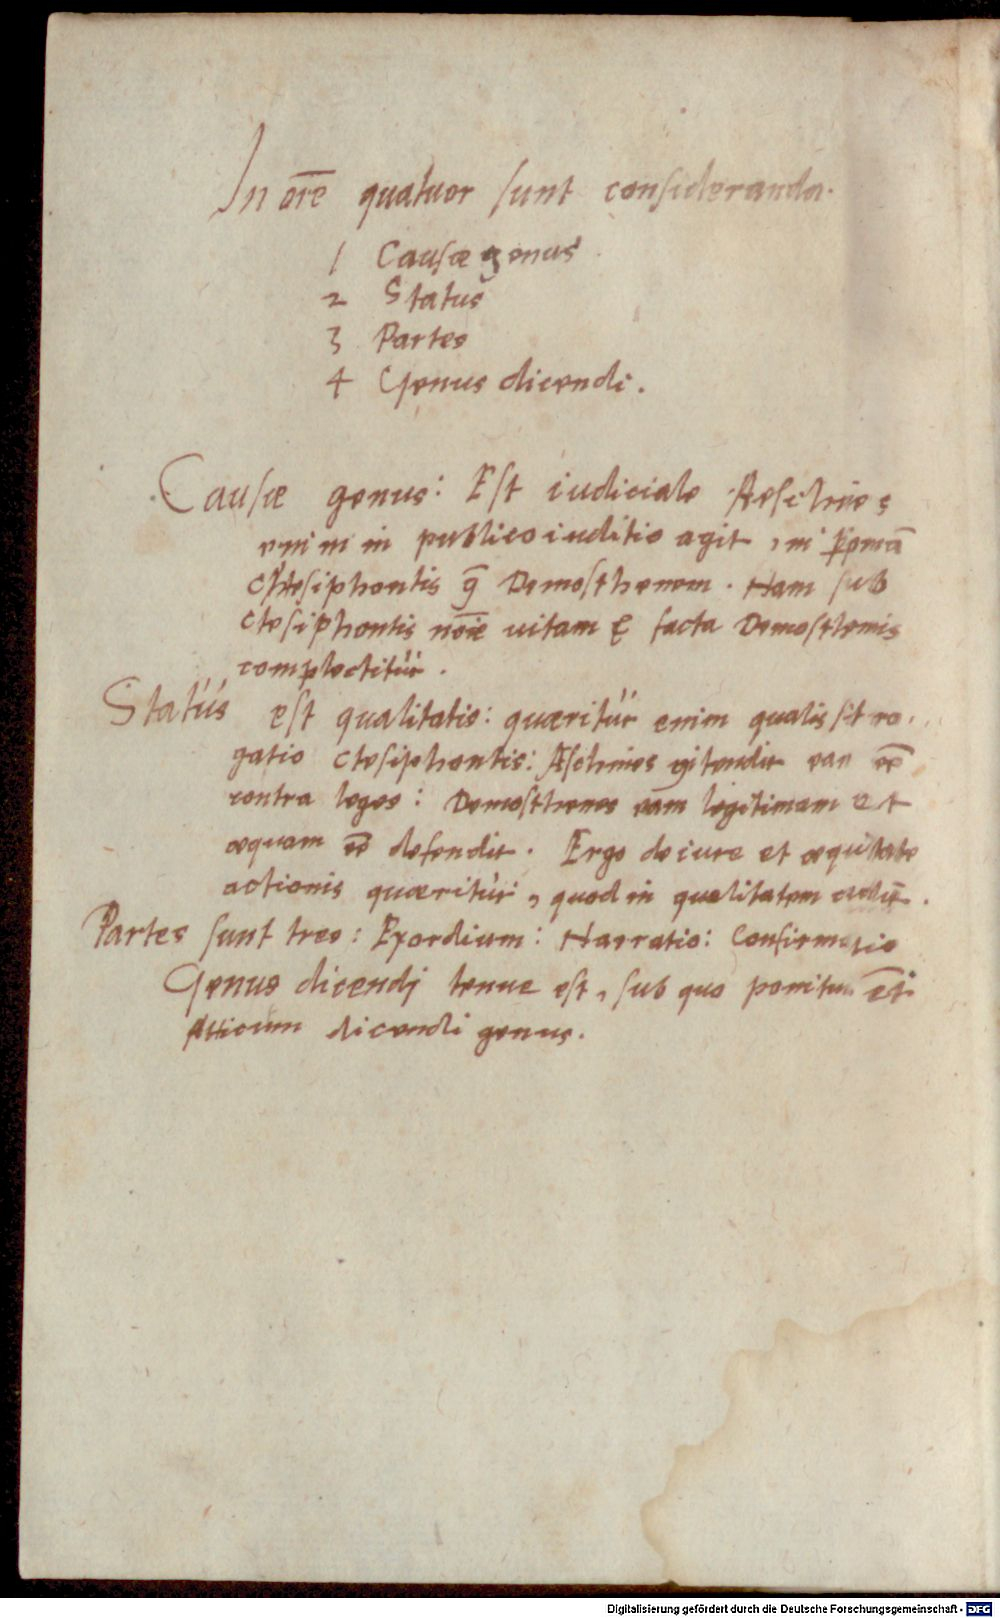 In orē̄e quatuor sunt consideranda.
1 Causæ genus
2 Status
3 Partes
4 Genus dicendi.
Causæ genus: Est iudiciale Aeschines
enim in publico iuditio agit, in
Ctesiphontis Demosthenem. Nam sub
ctesiphontis nōīe uitam & facta Demosthenis
complectitur.
Status est qualitatis: quæritur enim qualis sit ro-
gatio Ctesiphontis: Aschines eam eē
contra leges: Demosthenes eam legitimam et
æquam eē defendit. Ergo de iure et æquitate
actionis quæritur, quod in qualitatem
Partes sunt tres: Exordium: Narratio: Confirmatio
Genus dicendi tenue est, sub quo ponitur
Atticum dicendi genus.
Digitalisierung gefördert durch die Deutsche Forschungsgemeinschaft - DFG